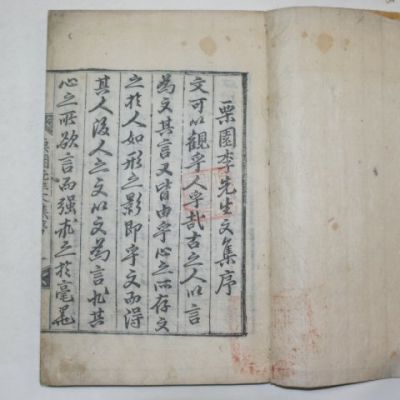 栗園李先生文集序
文可以觀乎人乎哉古之人以言
爲文其言又皆由乎心之所存文
之於人如形之影即乎文而得
其人後人之文以文爲言非其
心之所欲言而强形之於毫墨